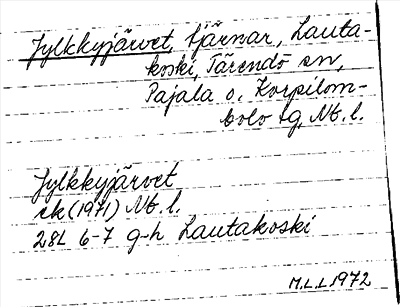 Jylkkyjärvet, tjärnar, Lauta-
koski, Tärendö sn,
Pajala o, Korpilom-
bolo tg, Nb. l.
Jylkkyjärvet
ek (1971) Nb. l.
28L 6-7 g-h Lautakoski
M.L.L 1972